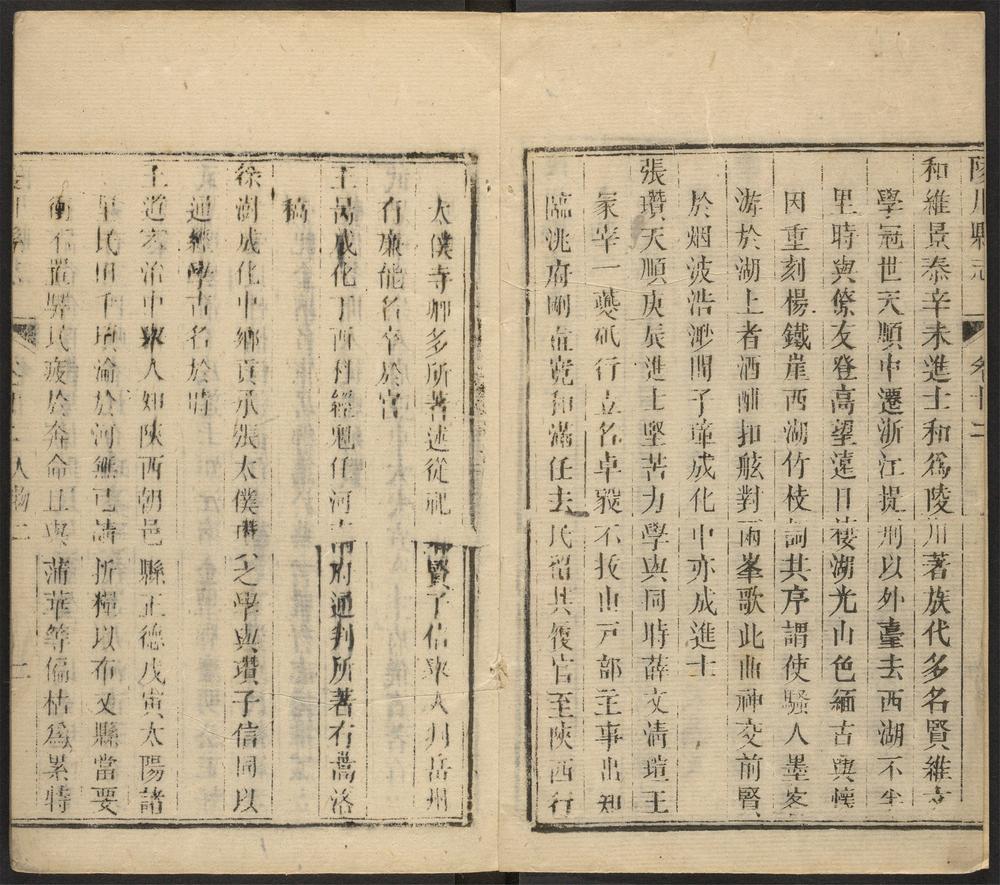 陵川縣志 卷廿二
和維景泰辛未進士和爲陵川著族代多名賢維文
學冠世天順中遷浙江提刑以外臺去西湖不半
里時與僚友登高望遠日接湖光山色緬古興懷
因重刻楊鐵崖西湖竹枝詞其序謂使騷人墨客
游於湖上者酒酣扣舷對兩峯歌此曲神交前賢
於烟波浩渺間子璋成化中亦成進士
張瓚天順庚辰進士堅苦力學與同時薛文清瑄王
冢宰一夔砥行立名卓毅不拔由戸部主事出知
臨洮府剛直寛和滿任去民留其履官至陝西行
太僕寺卿多所著述從祀鄉賢子信舉人判岳州
有廉能名卒於官
王暠成化丁酉科經魁任河南府通判所著有嵩洛
稿
徐澍成化中鄉貢承張太僕瓚之學與瓚子信同以
通經學古名於時
王道字治中舉人知陝西朝邑縣正德戊寅太陽諸
里民田千頃淪於河無已請折糧以布又縣當要
衝不置驛民疲於奔命且與蒲華等偏枯爲累特
陵川縣志 人物二 二